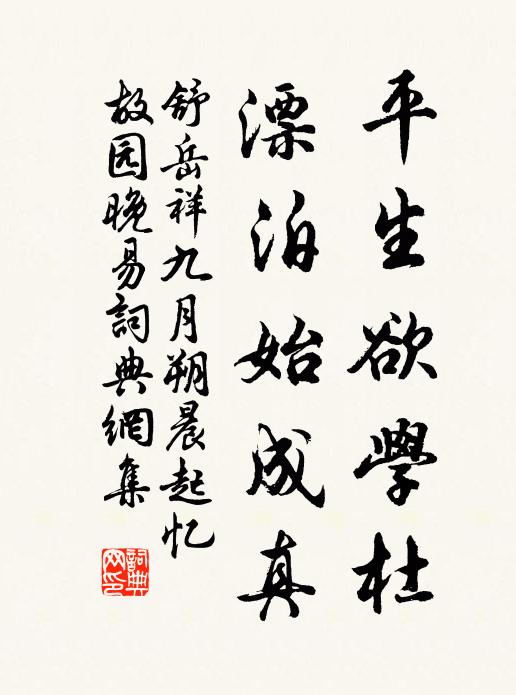 平生欲學杜
漂泊始成真
舒岳祥九月朔晨起忆
故园晚易詞典網集
詞典網印